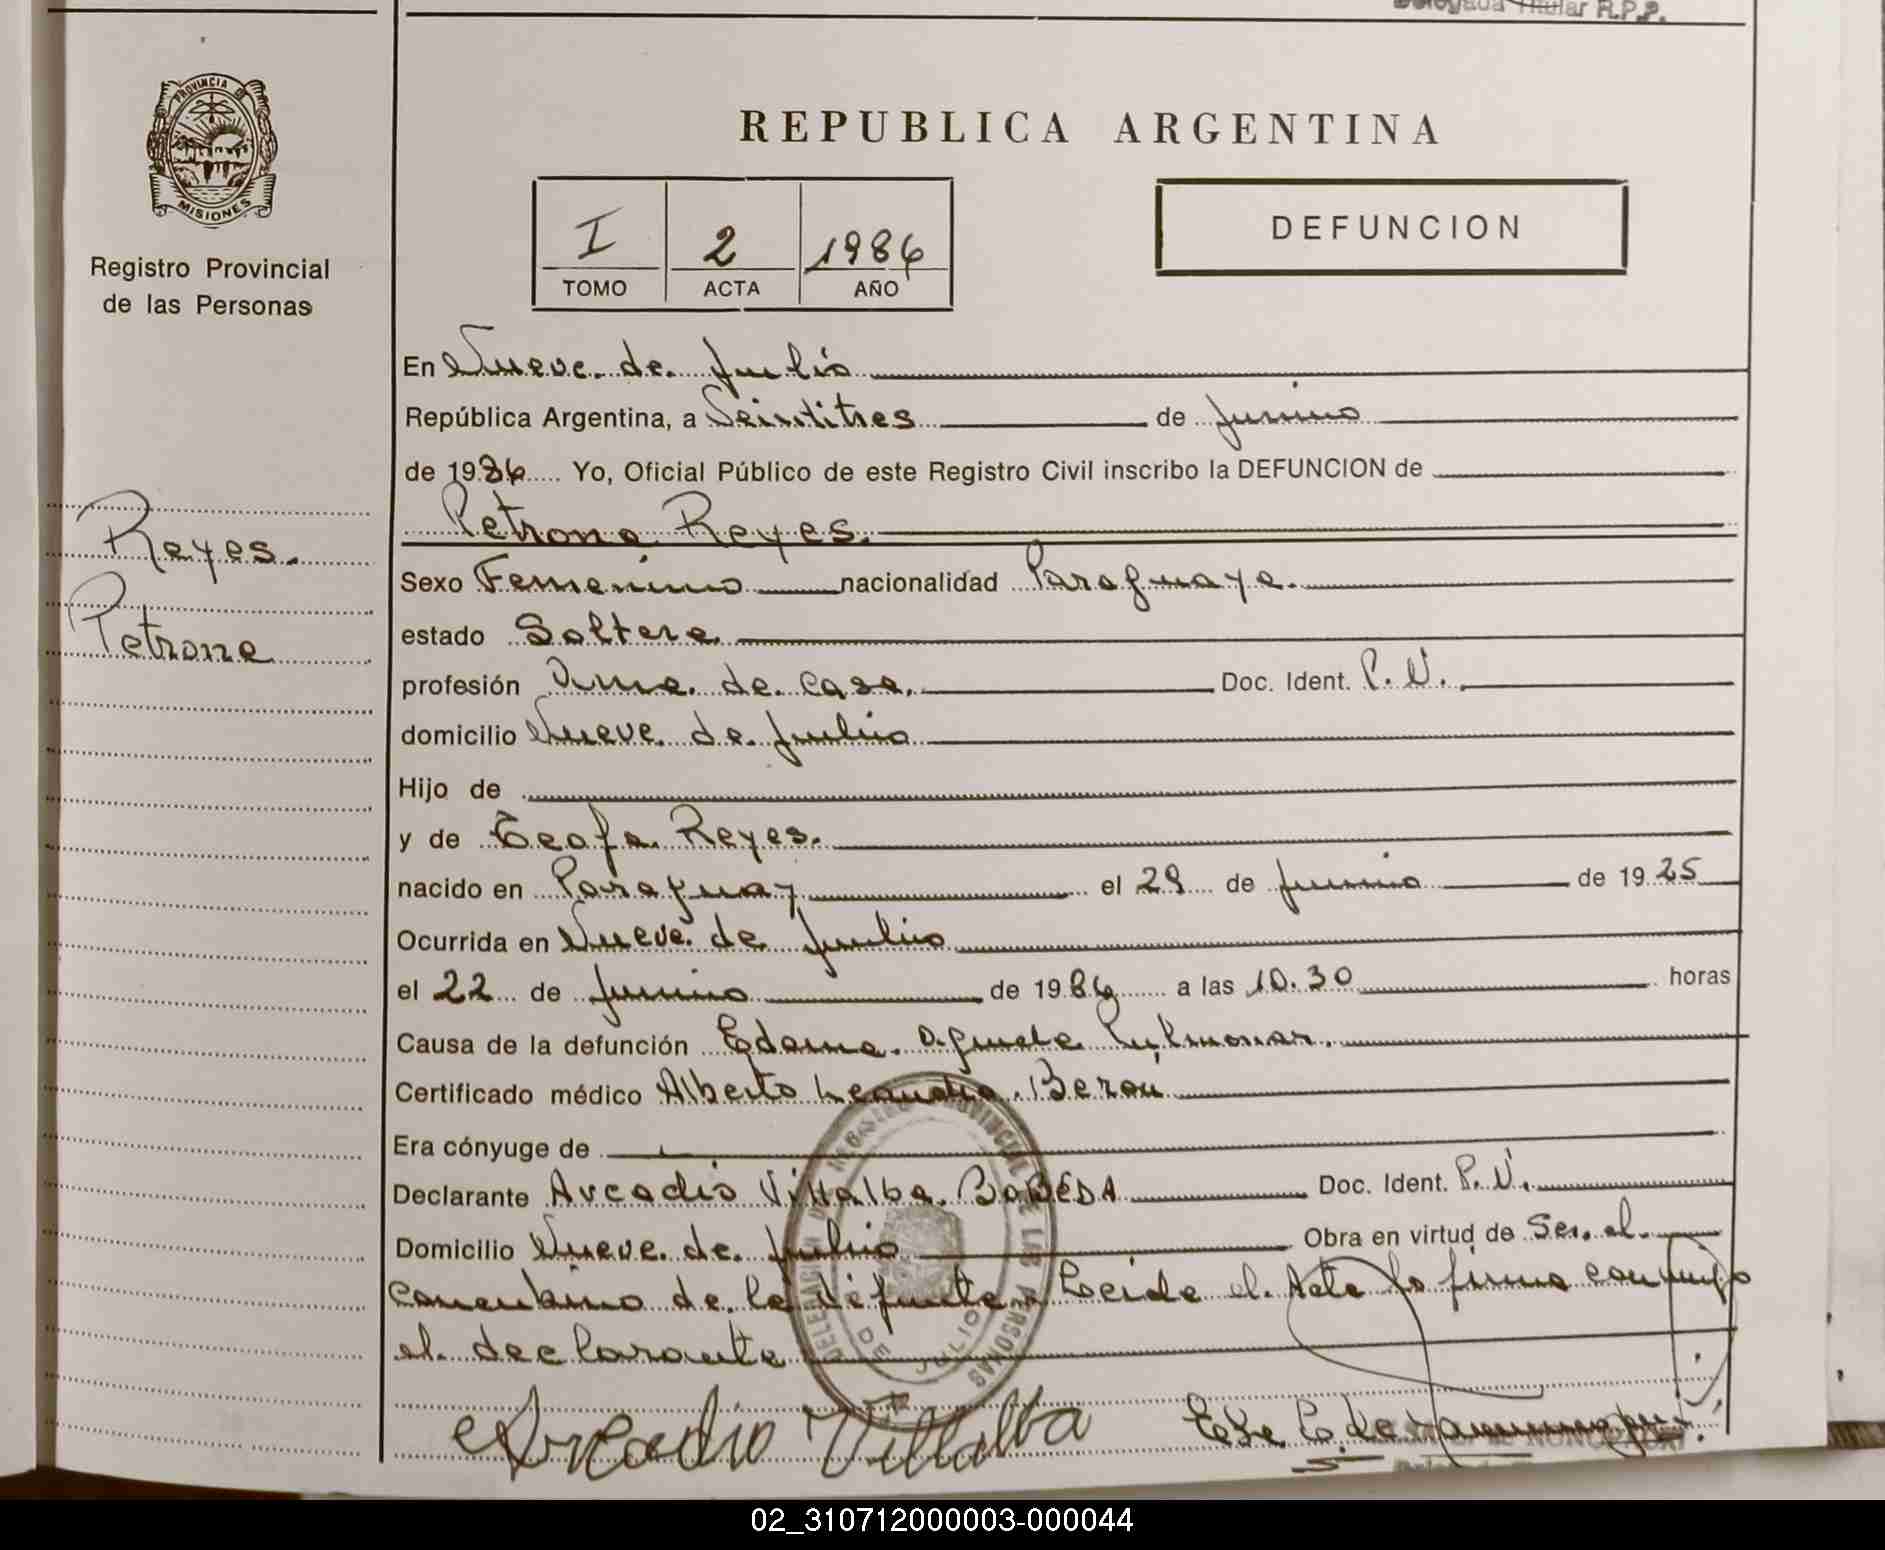 Delegada Titular R.P.P.
PROVINCIA DE
MISIONES
Registro Provincial
de las Personas
REPUBLICA ARGENTINA
I 2 1986
TOMO ACTA AÑO
DEFUNCION
En Nueve de Julio
República Argentina, a Veintitres de Junio
de 1986 Yo, Oficial Público de este Registro Civil inscribo la DEFUNCION de
Petrona Reyes.
Reyes.
Petrona
Sexo Femenino nacionalidad Paraguaya.
estado Soltera
profesión Ama de casa. Doc. Ident. P. N.
domicilio Nueve de Julio
Hijo de
y de Teofa Reyes.
nacido en Paraguay el 29 de Junio de 1925
Ocurrida en Nueve de Julio
el 22 de Junio de 1986 a las 10.30 horas
Causa de la defunción Edema Aguda Pulmonar.
Certificado médico Alberto Leandro
Era cónyuge de
Declarante Arcadio Villalba BOBEDA Doc. Ident. P. N.
Domicilio Nueve de Julio Obra en virtud de Ser el
concubino de la difunta Leida el Acta la firma conmigo
el declarante
DELEGACION REGISTRO PROVINCIAL DE LAS PERSONAS
DE JULIO
Arcadio Villalba
02_310712000003-000044